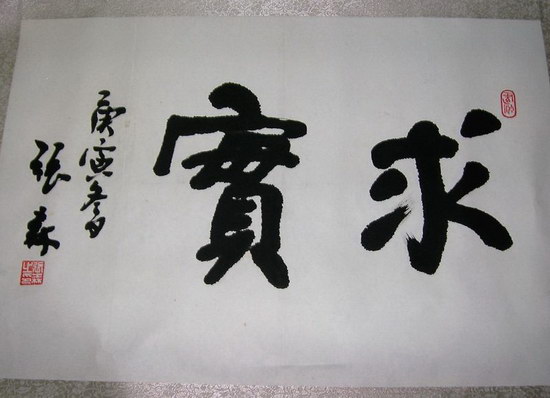 求實
庚寅冬日
張森